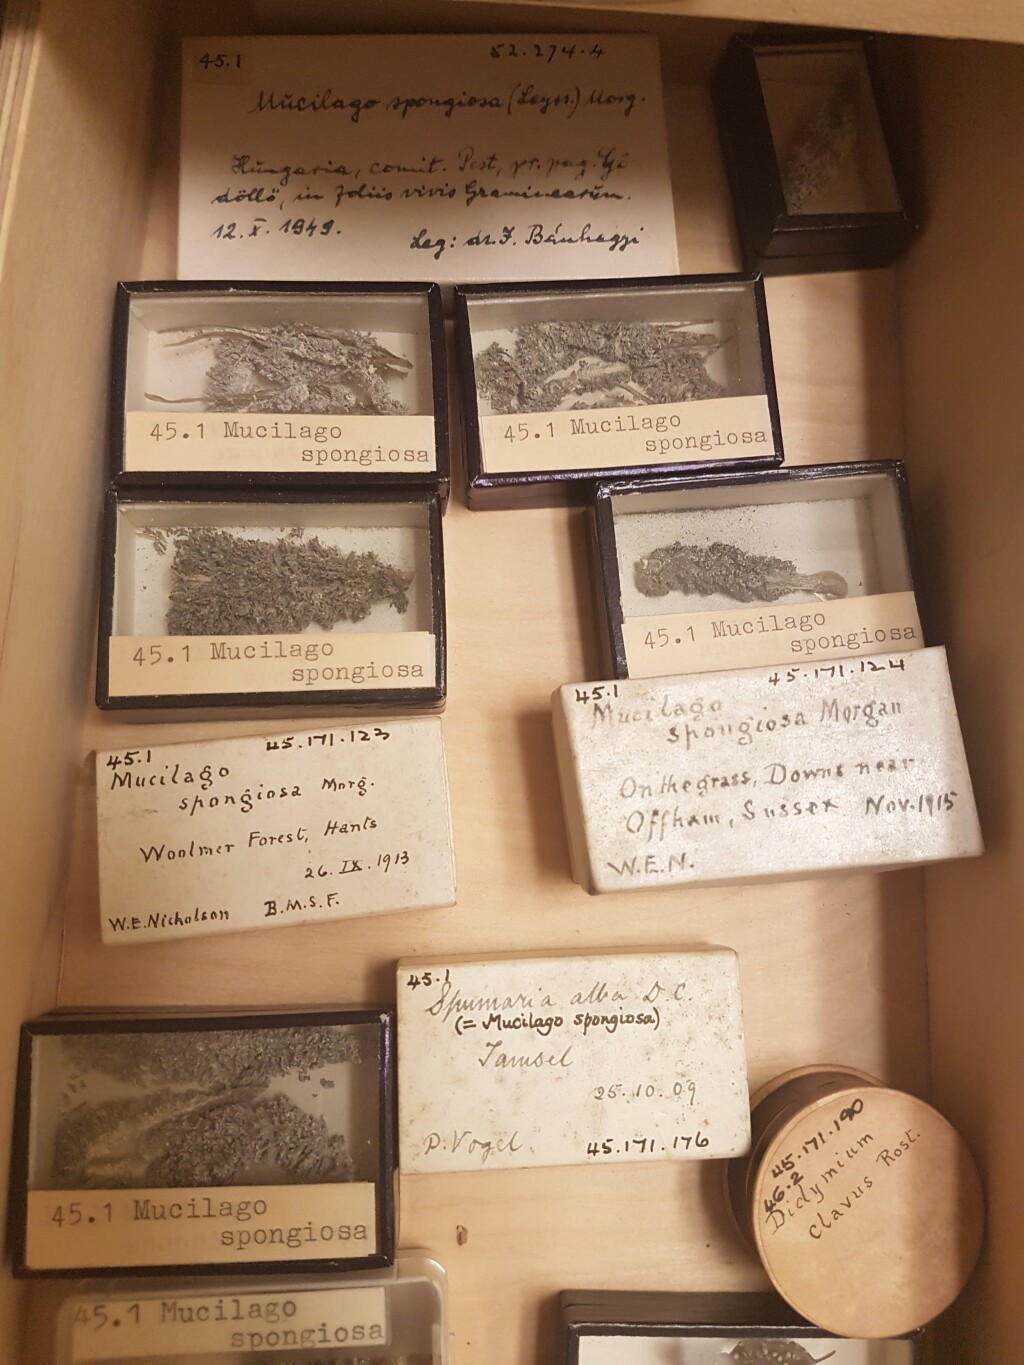 45.1 52.274.4
Mucilago spongiosa (Leyss.) Morg.
Hungaria, comit. Pest, pr. pag. Gö
döllő, in foliis vivis Graminearum.
12. X. 1949.
Leg: dr. J. Bánhegyi
45.1 Mucilago
spongiosa
45.1 Mucilago
spongiosa
45.1 Mucilago
spongiosa
45.1 Mucilago
spongiosa
45.1 45.171.124
Mucilago
spongiosa Morgan
On the grass, Downs near
Offham, Sussex Nov. 1915
W.E.N.
45.1 45.171.123
Mucilago
spongiosa Morg.
Woolmer Forest, Hants
26. IX. 1913
W.E. Nicholson B.M.S.F.
45.1
Spumaria alba D.C.
(= Mucilago spongiosa)
Tamsel
25.10.09
P. Vogel 45.171.176
45.171.190
46.2
Didymium
clavus Rost.
45.1 Mucilago
spongiosa
45.1 Mucilago
spongiosa